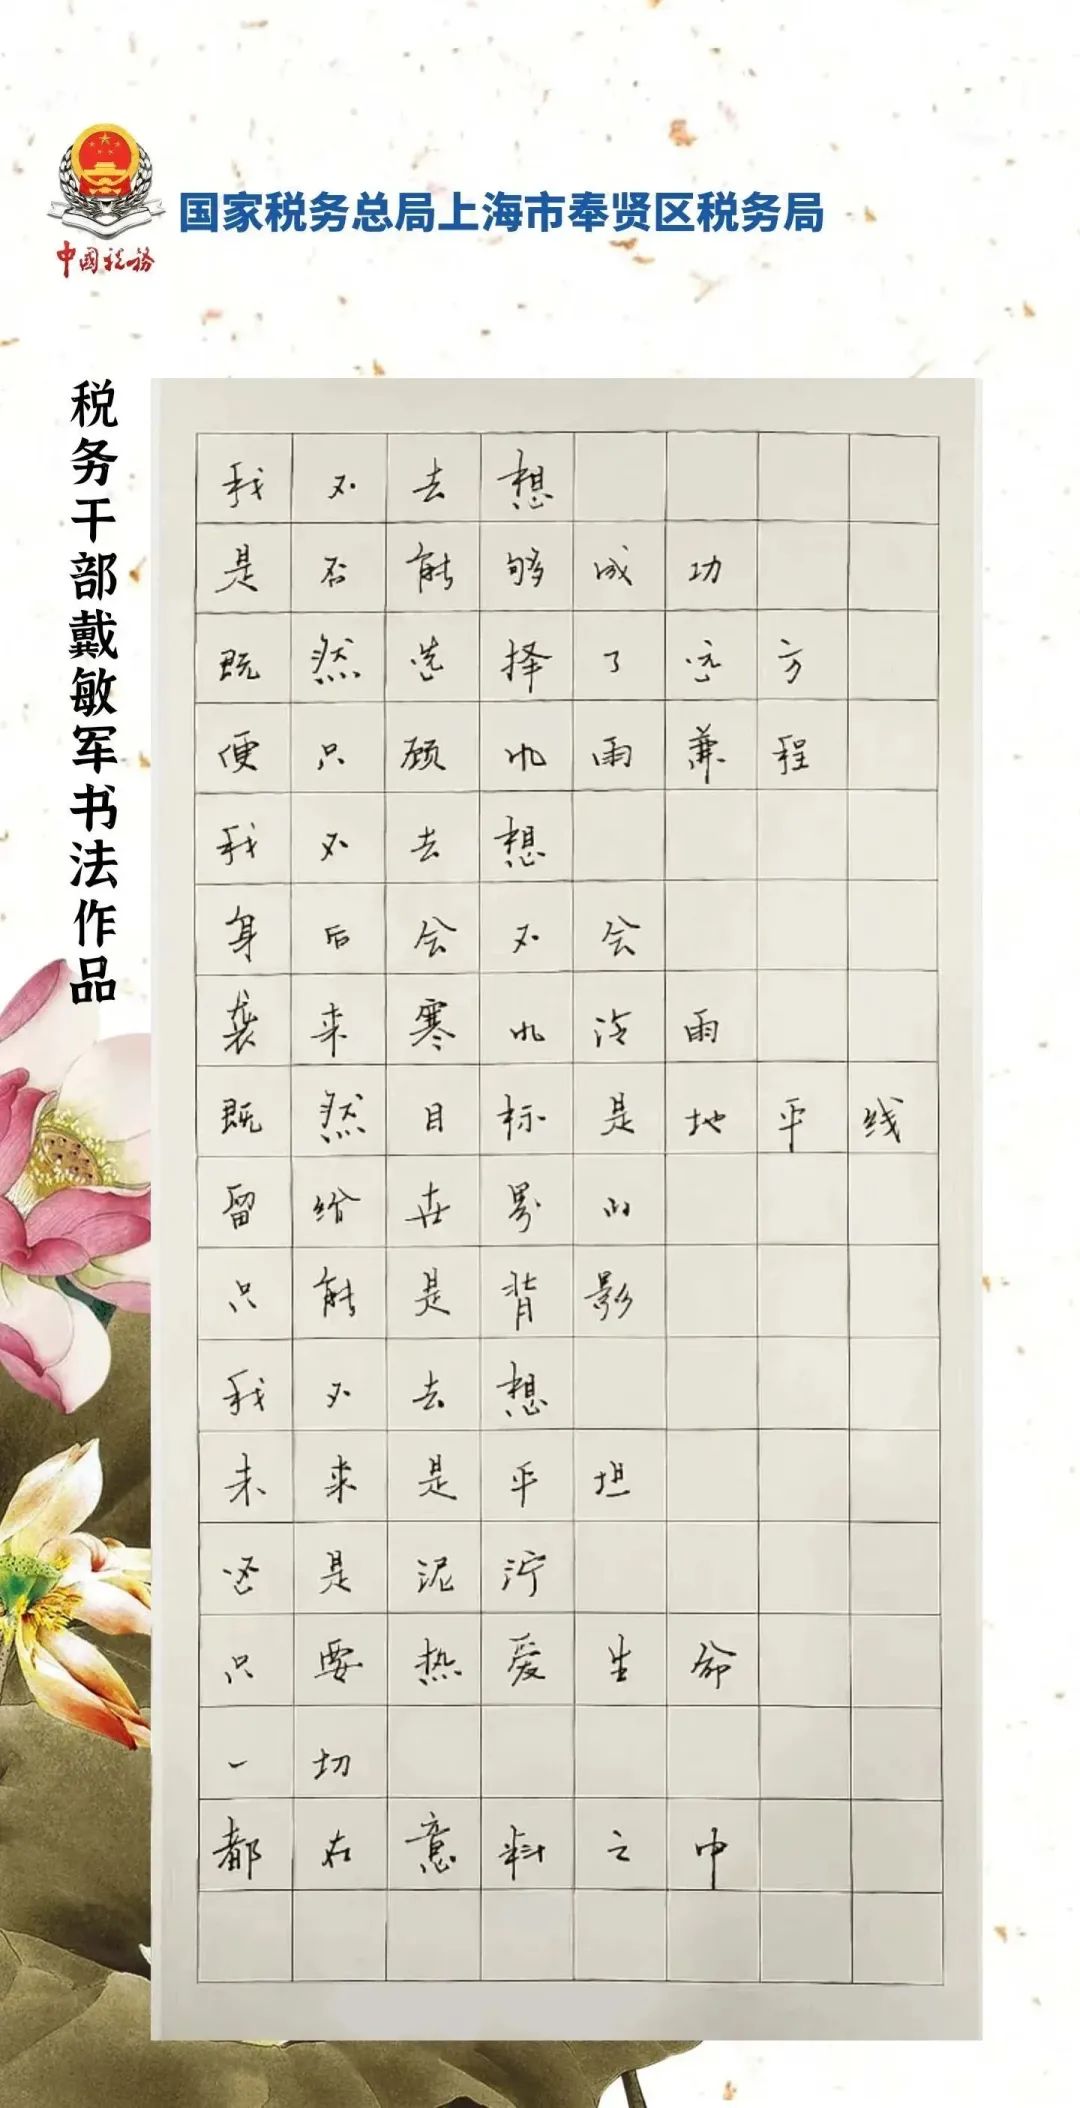 国家税务总局上海市奉贤区税务局
中国税务
税务干部戴敏军书法作品
我不去想
是否能够成功
既然选择了远方
便只顾风雨兼程
我不去想
身后会不会
袭来寒风冷雨
既然目标是地平线
留给世界的
只能是背影
我不去想
未来是平坦
还是泥泞
只要热爱生命
一切
都在意料之中